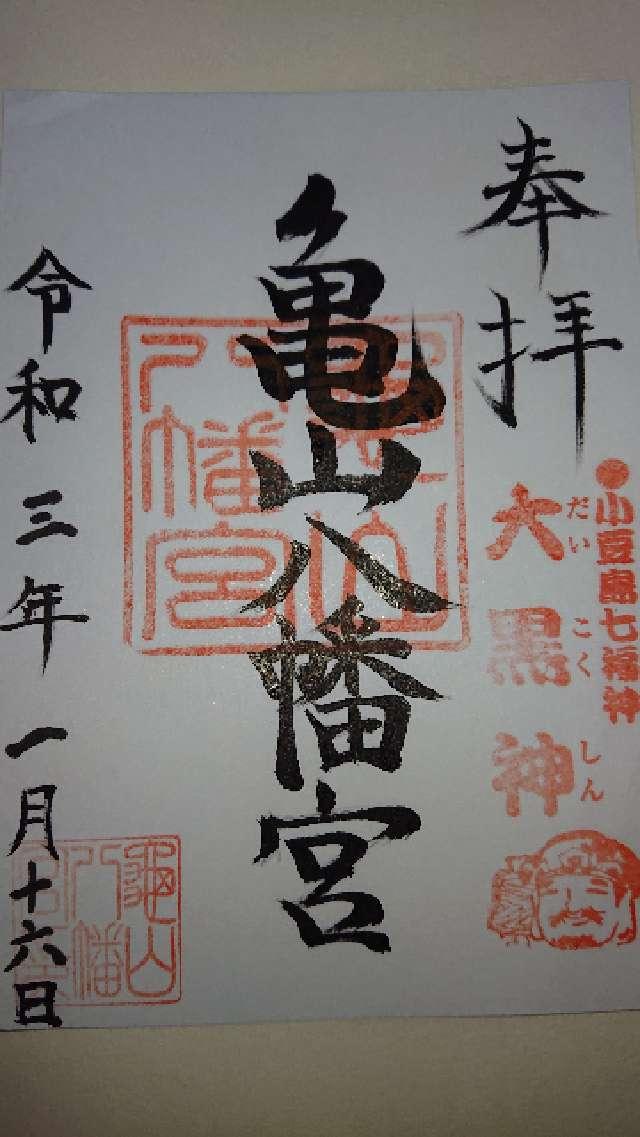 奉拝
●小豆島七福神
大黒神
だいこくしん
亀山八幡宮
亀山八幡宮
令和三年一月十六日
亀山
八幡